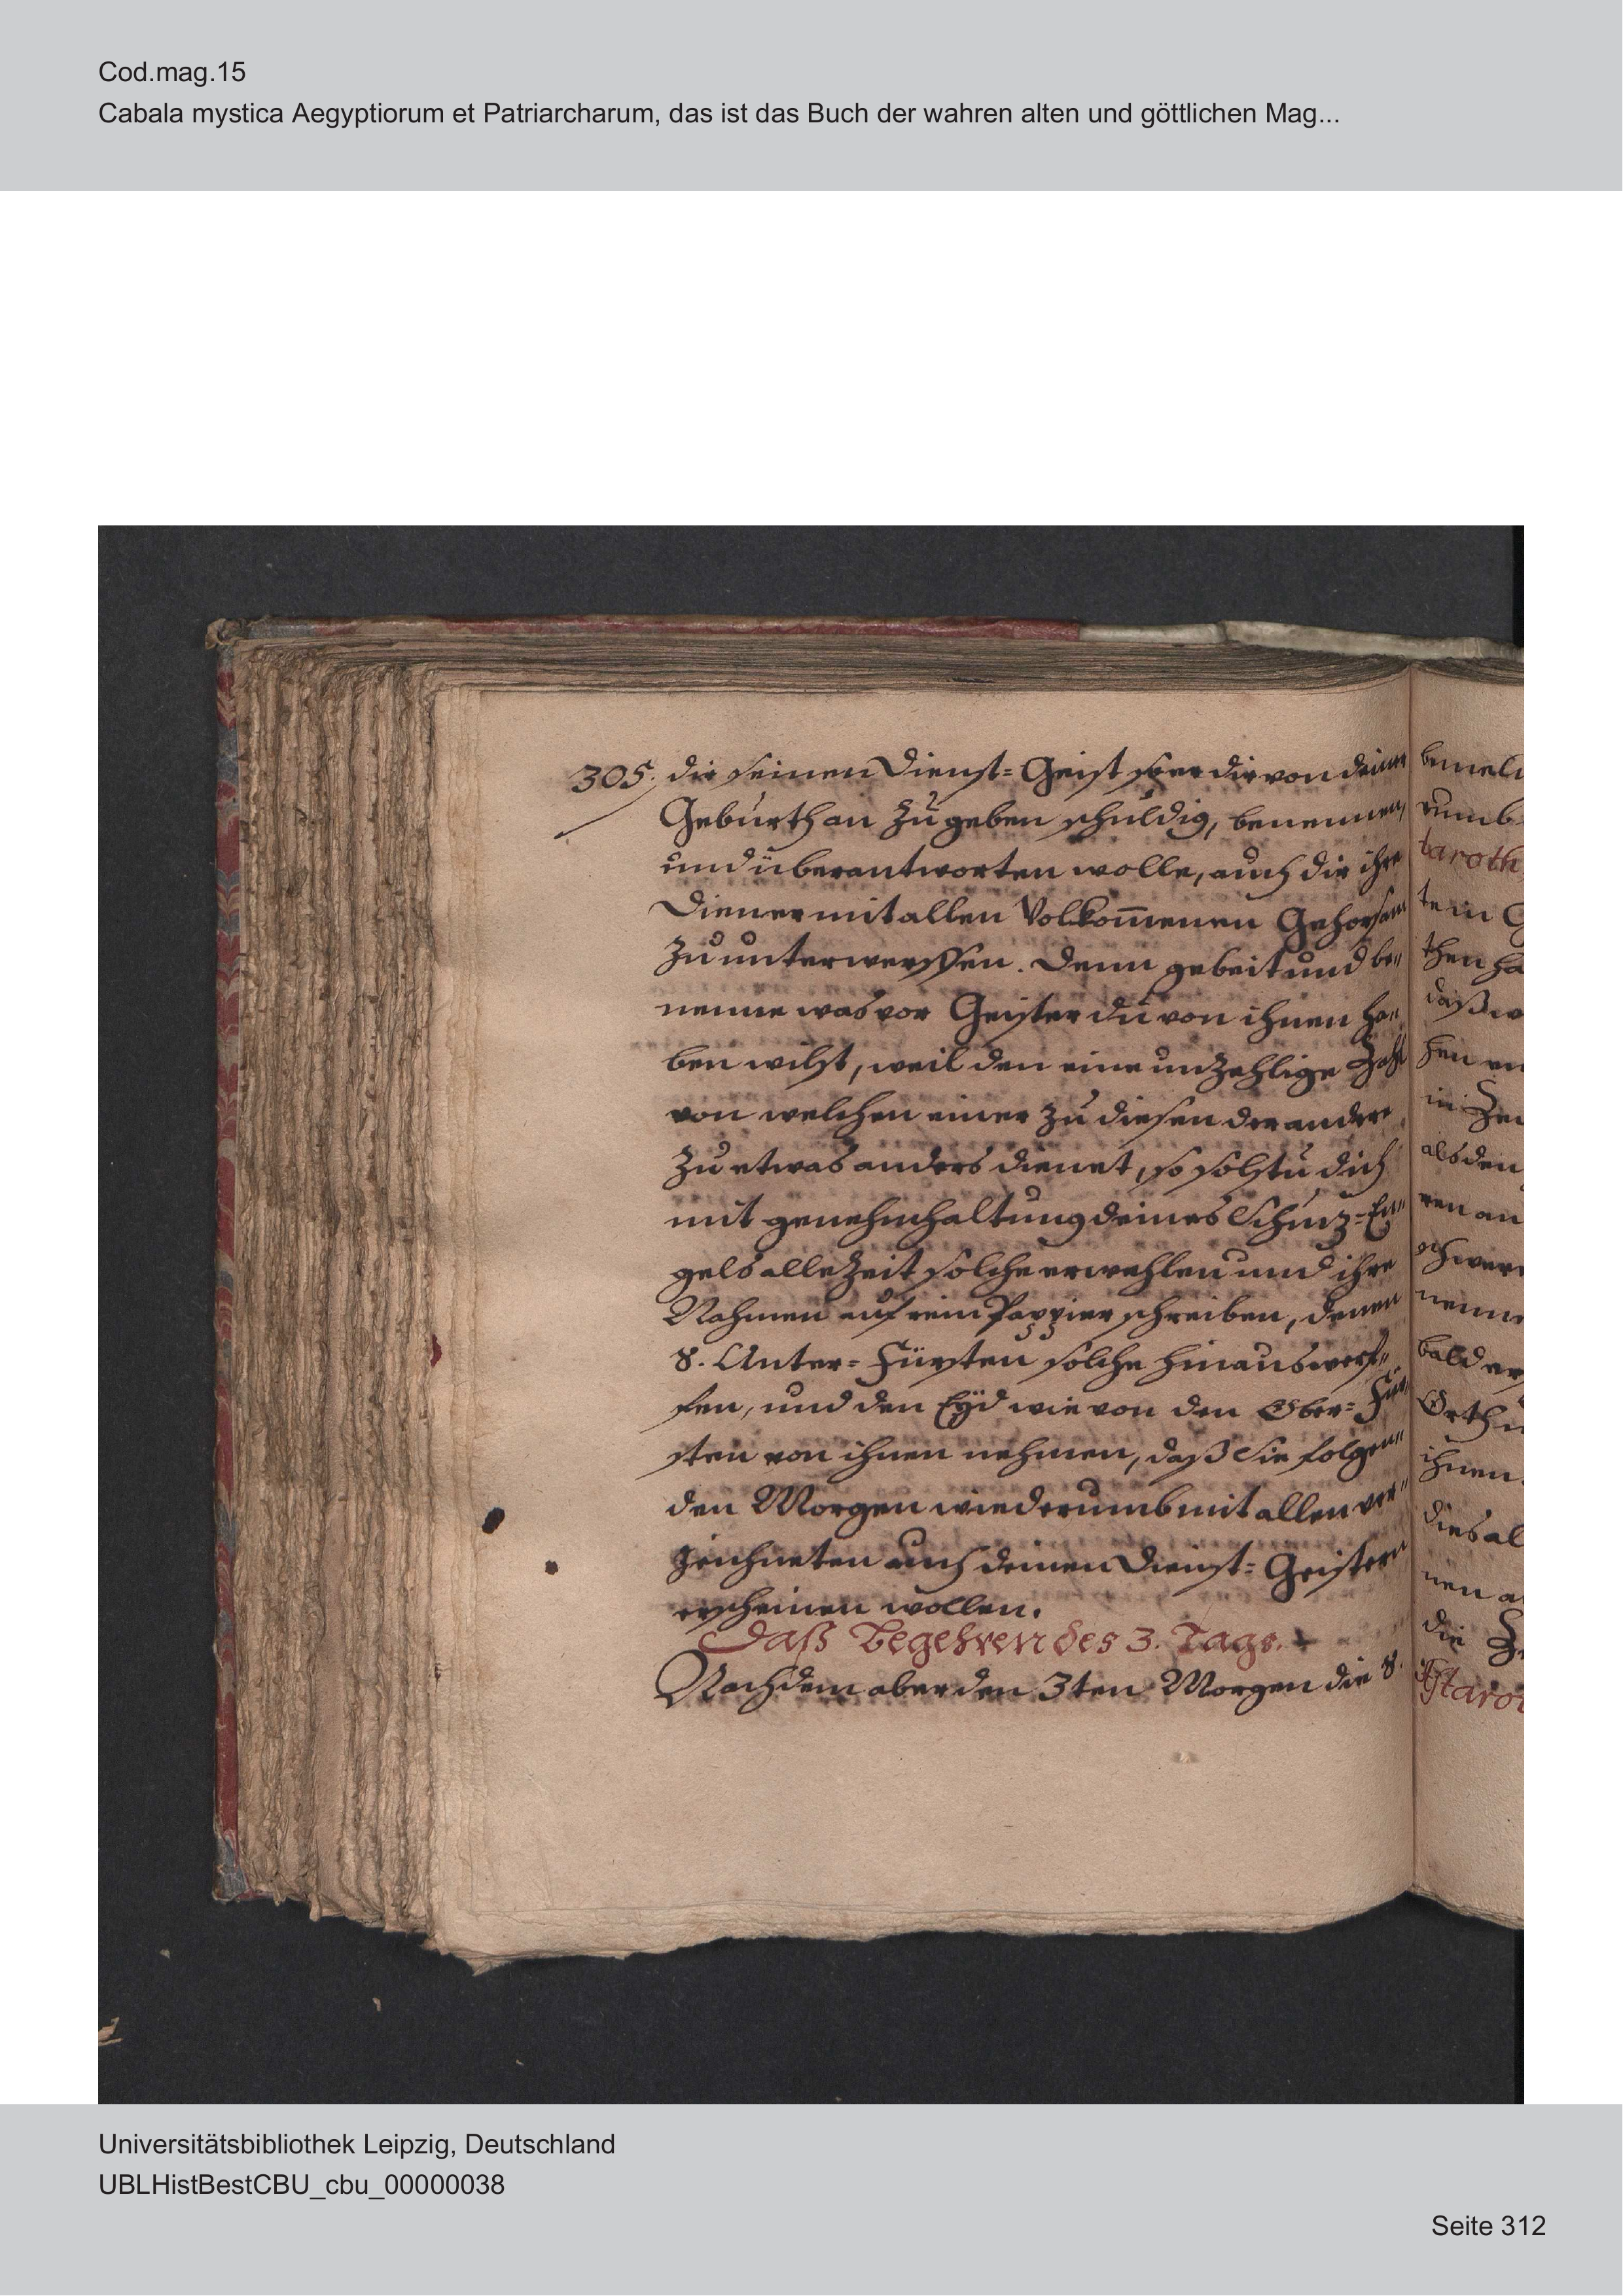 Cod.mag.15
Cabala mystica Aegyptiorum et Patriarcharum, das ist das Buch der wahren alten und göttlichen Mag...
305. dir seinen Dienst= Geist so er dir von deiner
Geburth an zu geben schuldig, benennen,
und überantworten wolle, auch dir ihre
Diener mit allen Volkom̅enen Gehorsam
zu unterwerffen. Denn gebeit und be"
nenne was vor Geister du von ihnen ha"
ben wilst, weil den eine unzehlige Zahl
von welchen einer zu diesen der andere
zu etwas anders dienet, so solstu dich
mit genehmhaltung deines Schuz=En"
gels allezeit solche erwehlen und ihre
Nahmen auf rein Pappier schreiben, denen
8. Unter= Fürsten solche hinauswerf"
fen, und den Eyd wie von den Ober= Für"
sten von ihnen nehmen, daß Sie folgen"
den Morgen wiederumb mit allen ver"
zeichneten auch deinen Dienst= Geistern
erscheinen wollen.
Daß Begehren des 3. Tags.
Nachdem aber den 3ten Morgen die 8.
taroth
then ha
daß w
hen
in
als den
ren an
nenne
bald er
Orth
ihnen
dies al
nen a
die
Astaro
Universitätsbibliothek Leipzig, Deutschland
UBLHistBestCBU_cbu_00000038
Seite 312